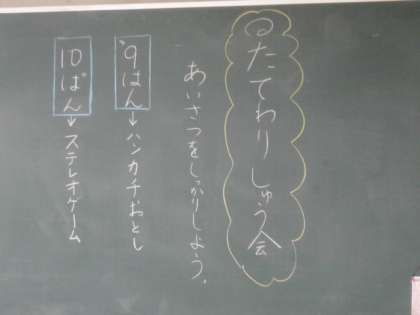 めたてわりしゅう会
あいさつをしっかりしよう。
9はん→ハンカチおとし
10ぱん→ステレオゲーム